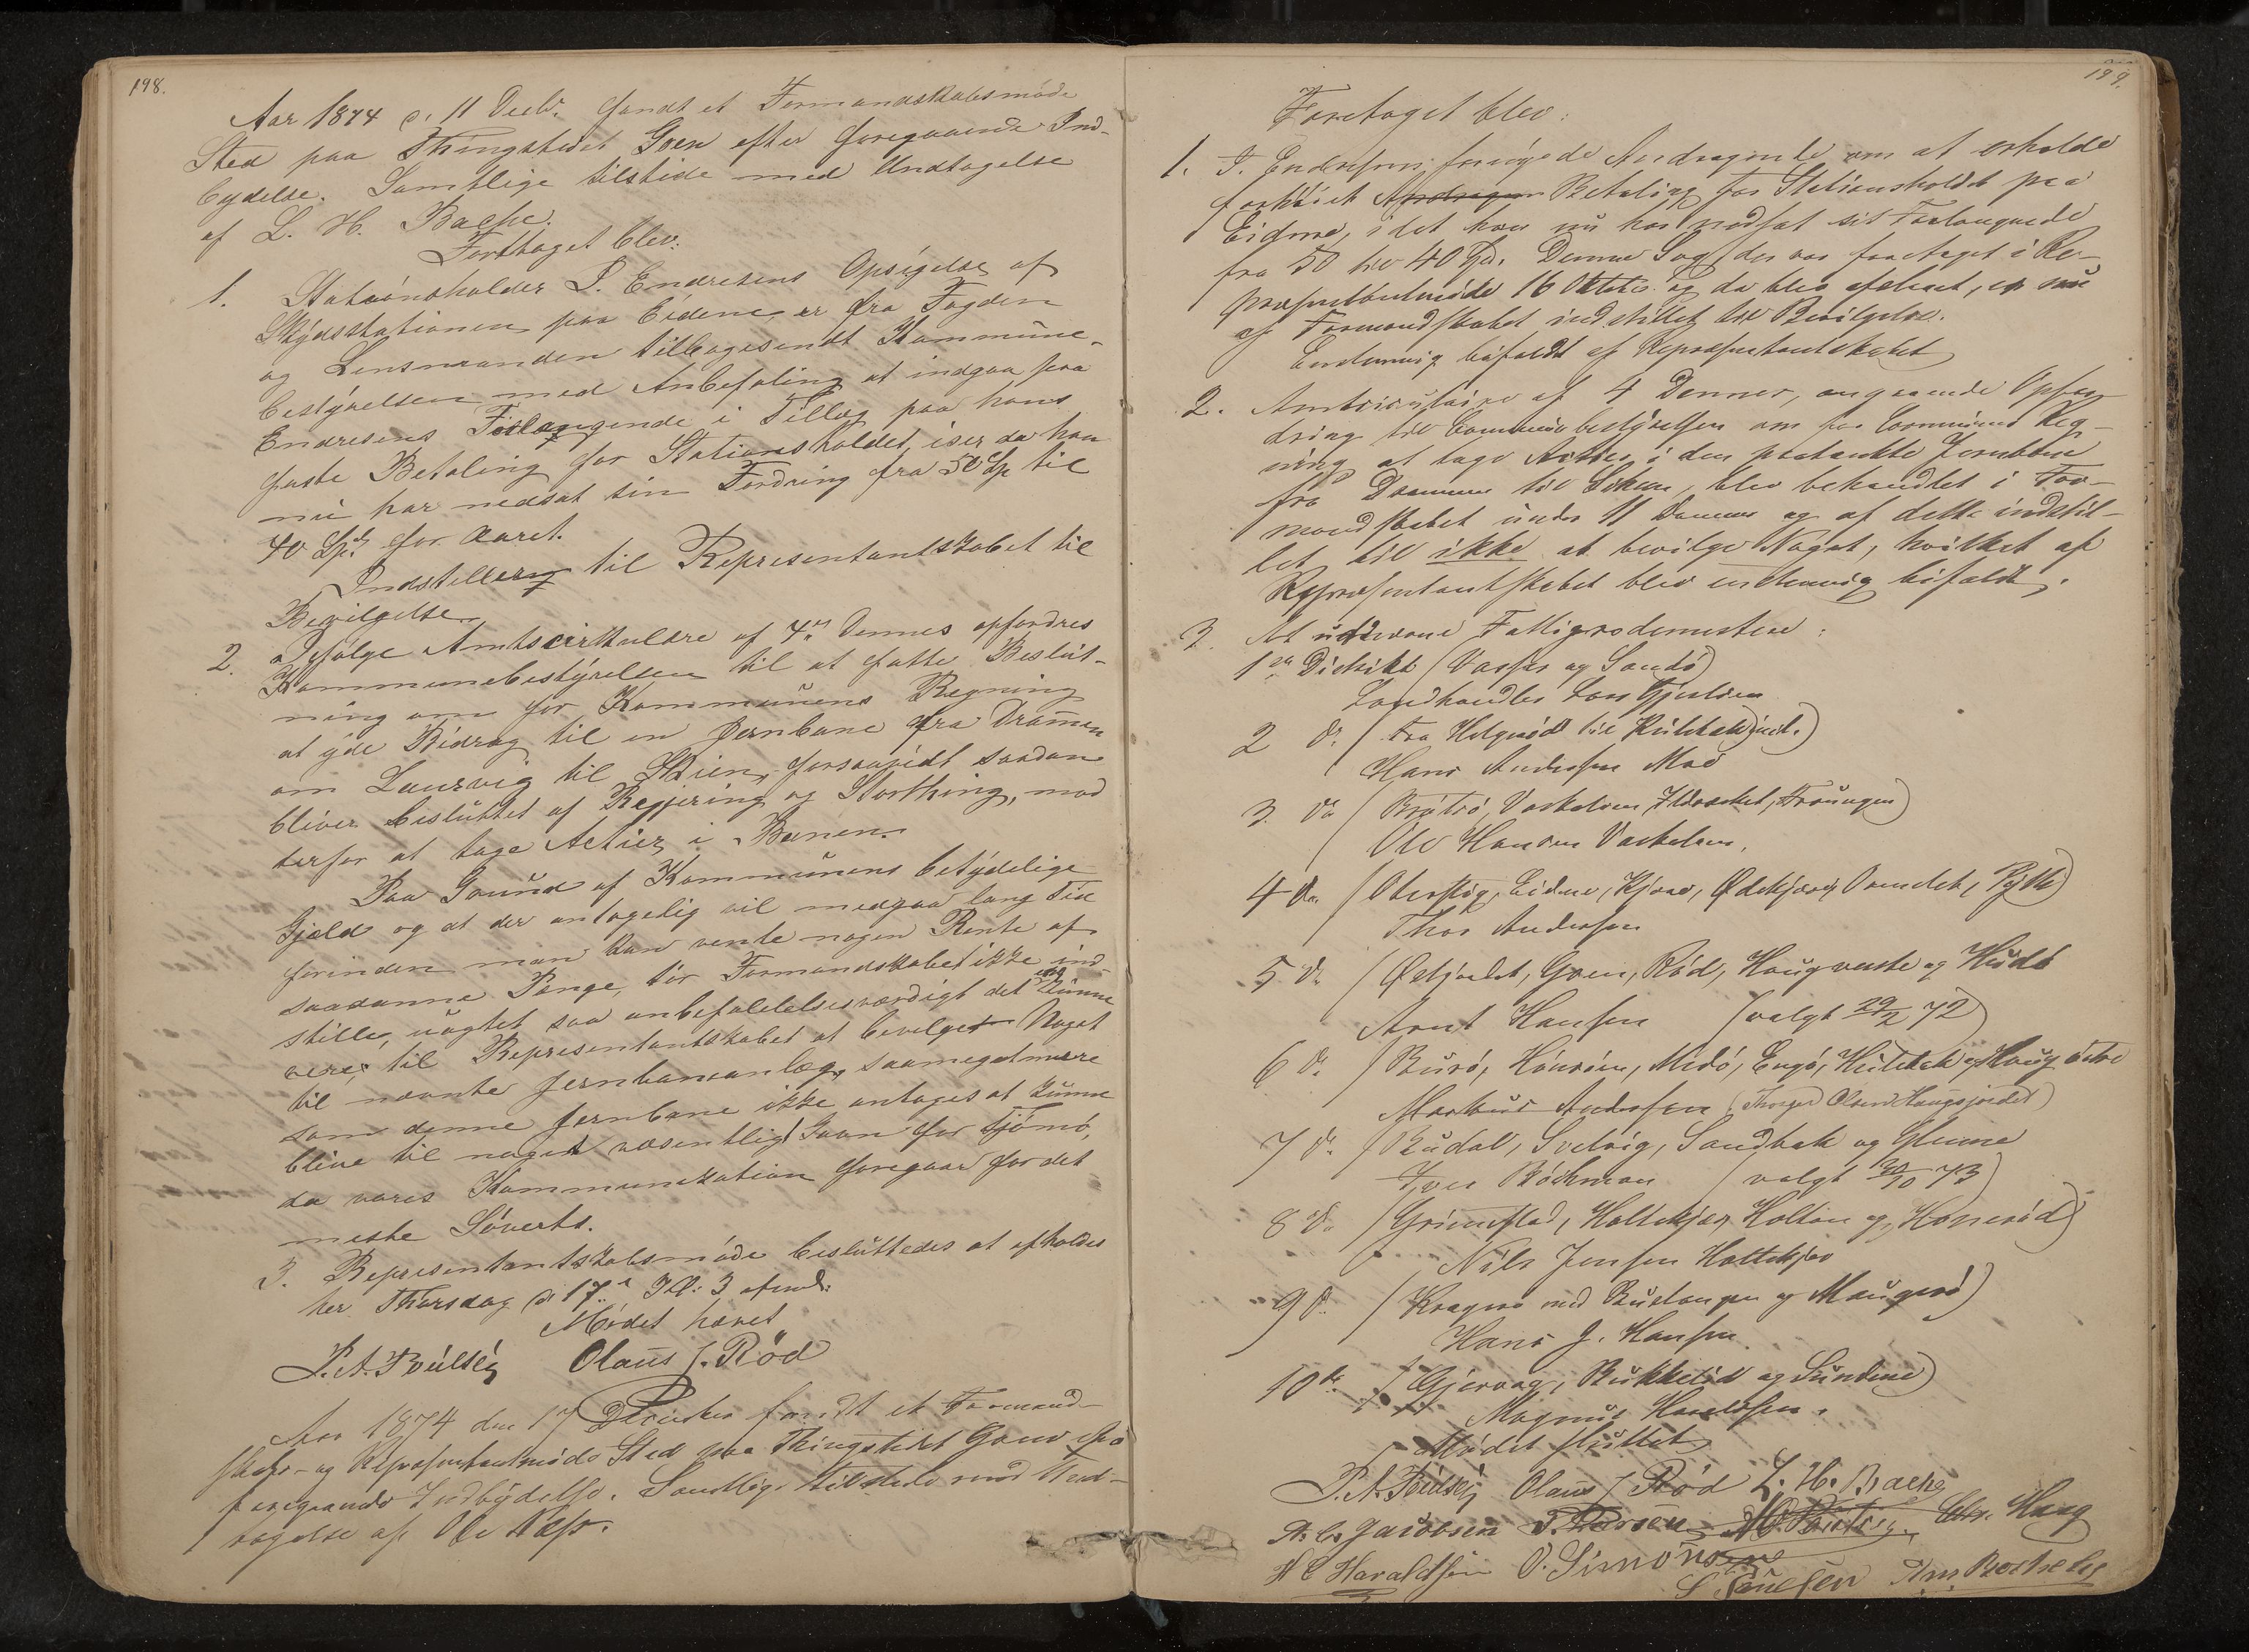 198.
Aar 1874 d. 11 Decbr. fandt et Formandskabsmöde
Sted paa Thingstedet Goen efter foregaaende Ind-
bydelse. Samtlige tilstede med Undtagelse
af L. H. Bache.
Foretaget blev:
1. Stationsholder I. Endresens Opsigelse af
Skydsstationen paa Eidene er fra Fogden
og Lensmanden tilbagesendt Kommune-
bestyrelsen med Anbefaling at indgaa paa
Endresens Forlangende i Tillæg paa hans
faste Betaling for Stationsholdet, især da han
nu har nedsat sin Fordring fra 50 Sp til
40 Spd for Aaret.
Indstilles til Representantskabet til
Bevilgelse.
2. Ifølge Amtscirkulære af 4de Dennes opfordres
Kommunebestyrelsen til at fatte Beslut-
ning om for Kommunens Regning
at yde Bidrag til en Jernbane fra Drammen
om Laurvig til Skien, forsaavidt saadan
bliver besluttet af Regjering og Storthing, mod
derfor at tage Actier i Banen.
Paa Grund af Kommunens betydelige
Gjæld og at der antagelig vil medgaa lang Tid
forinden man kan vente nogen Rente af
saadanne Penge, tör Formandskabet ikke ind-
stille, uagtet saa anbefalelsesværdigt det end kunne
være, til Representantskabet at bevilge Noget
til nævnte Jernbaneanlæg, saameget mere
som denne Jernbane ikke antages at kunne
blive til noget væsentligt Gavn for Tjömö,
da vores Kommunikation foregaar for det
meste Söverts.
3. Representantskabsmöde besluttedes at afholdes
her Thorsdag d. 17de Kl. 3 efmd.
Mödet hævet
P. A. Bulling Olaus J. Röd
Aar 1874 den 17 December fandt et Formand-
skabs- og Repræsentantmöde Sted paa Thingstedet Goen efter
foregaaende Indbydelse. Samtlige tilstede med Und-
tagelse af Ole Næss.
199.
Foretaget blev:
1. I. Endresens fornyede Andragende om at erholde
forhöiet Betaling for Stationsholdet paa
Eidene, idet han nu har nedsat sit Forlangende
fra 50 til 40 Spd. Denne Sag der var foretaget i Re-
præsentantmöde 16 Oktober og da blev afslaaet, er nu
af Formandskabet indstillet til Bevilgelse.
Enstemmig bifaldt af Repræsentantskabet
2. Amtscirculaire af 4 Dennes, angaaende Opfor-
dring til Communebestyrelsen om for Communens Reg-
ning at tage Actier i den paatænkte Jernbane
fra Drammen til Skien, blev behandlet i For-
mandskabet under 11 Dennes og af dette indstil-
let til ikke at bevilge Noget, hvilket af
Repræsentantskabet blev enstemmig bifaldt.
3. At udnævne Fattigrodemestere:
1ste Distrikt (Vasser og Sandö)
Landhandler Lars Gjertsen
2 Do. (Fra Helgeröd til Kulebæk incl.)
Hans Andersen Moe
3. Do (Bråtö, Vaskalven, Ildverket, Trougen)
Ole Hansen Vaskalven.
4 Do. (Oterstig, Eidene, Kjære, Ødekjær, Ormelet, Pytte)
Thor Andersen
5 Do. (Østjordet, Goen, Röd, Haugvenste og Hudö
Arnt Hansen (valgt 29/2 72)
6 Do. (Burö, Hönsöen, Medö, Engö, Kulebæk og Haug östre
Markus Andersen (Thorger Olsen Haugsjordet)
7 Do. (Budal, Svelvig, Sandbæk og Glenne
Iver Böckman (valgt 30/10 73)
8 Do. (Grimestad, Holtekjær, Holtan og Honeröd)
Nils Jensen Holtekjær
9 D. (Kragerö med Buelangen og Maugerö)
Hans J. Hansen
10 do. (Gjervaag, Bukkelid og Sundene)
Magnus Haraldsen.
Mödet sluttet
P. A. Bulling Olaus J. Röd L. H. Bache
A. C. Jacobsen Chr. Haug
H C Haraldsen O. Simonsen